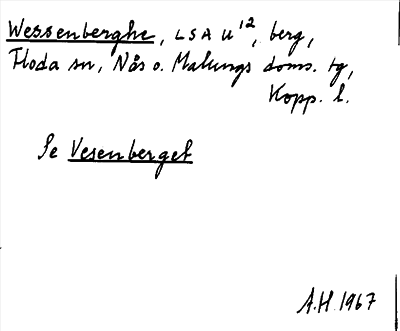 Wessenberghe, LSA U 12, berg,
Floda sn, Nås o. Malungs doms. tg,
Kopp. l.
Se Vesenberget
A.H. 1967